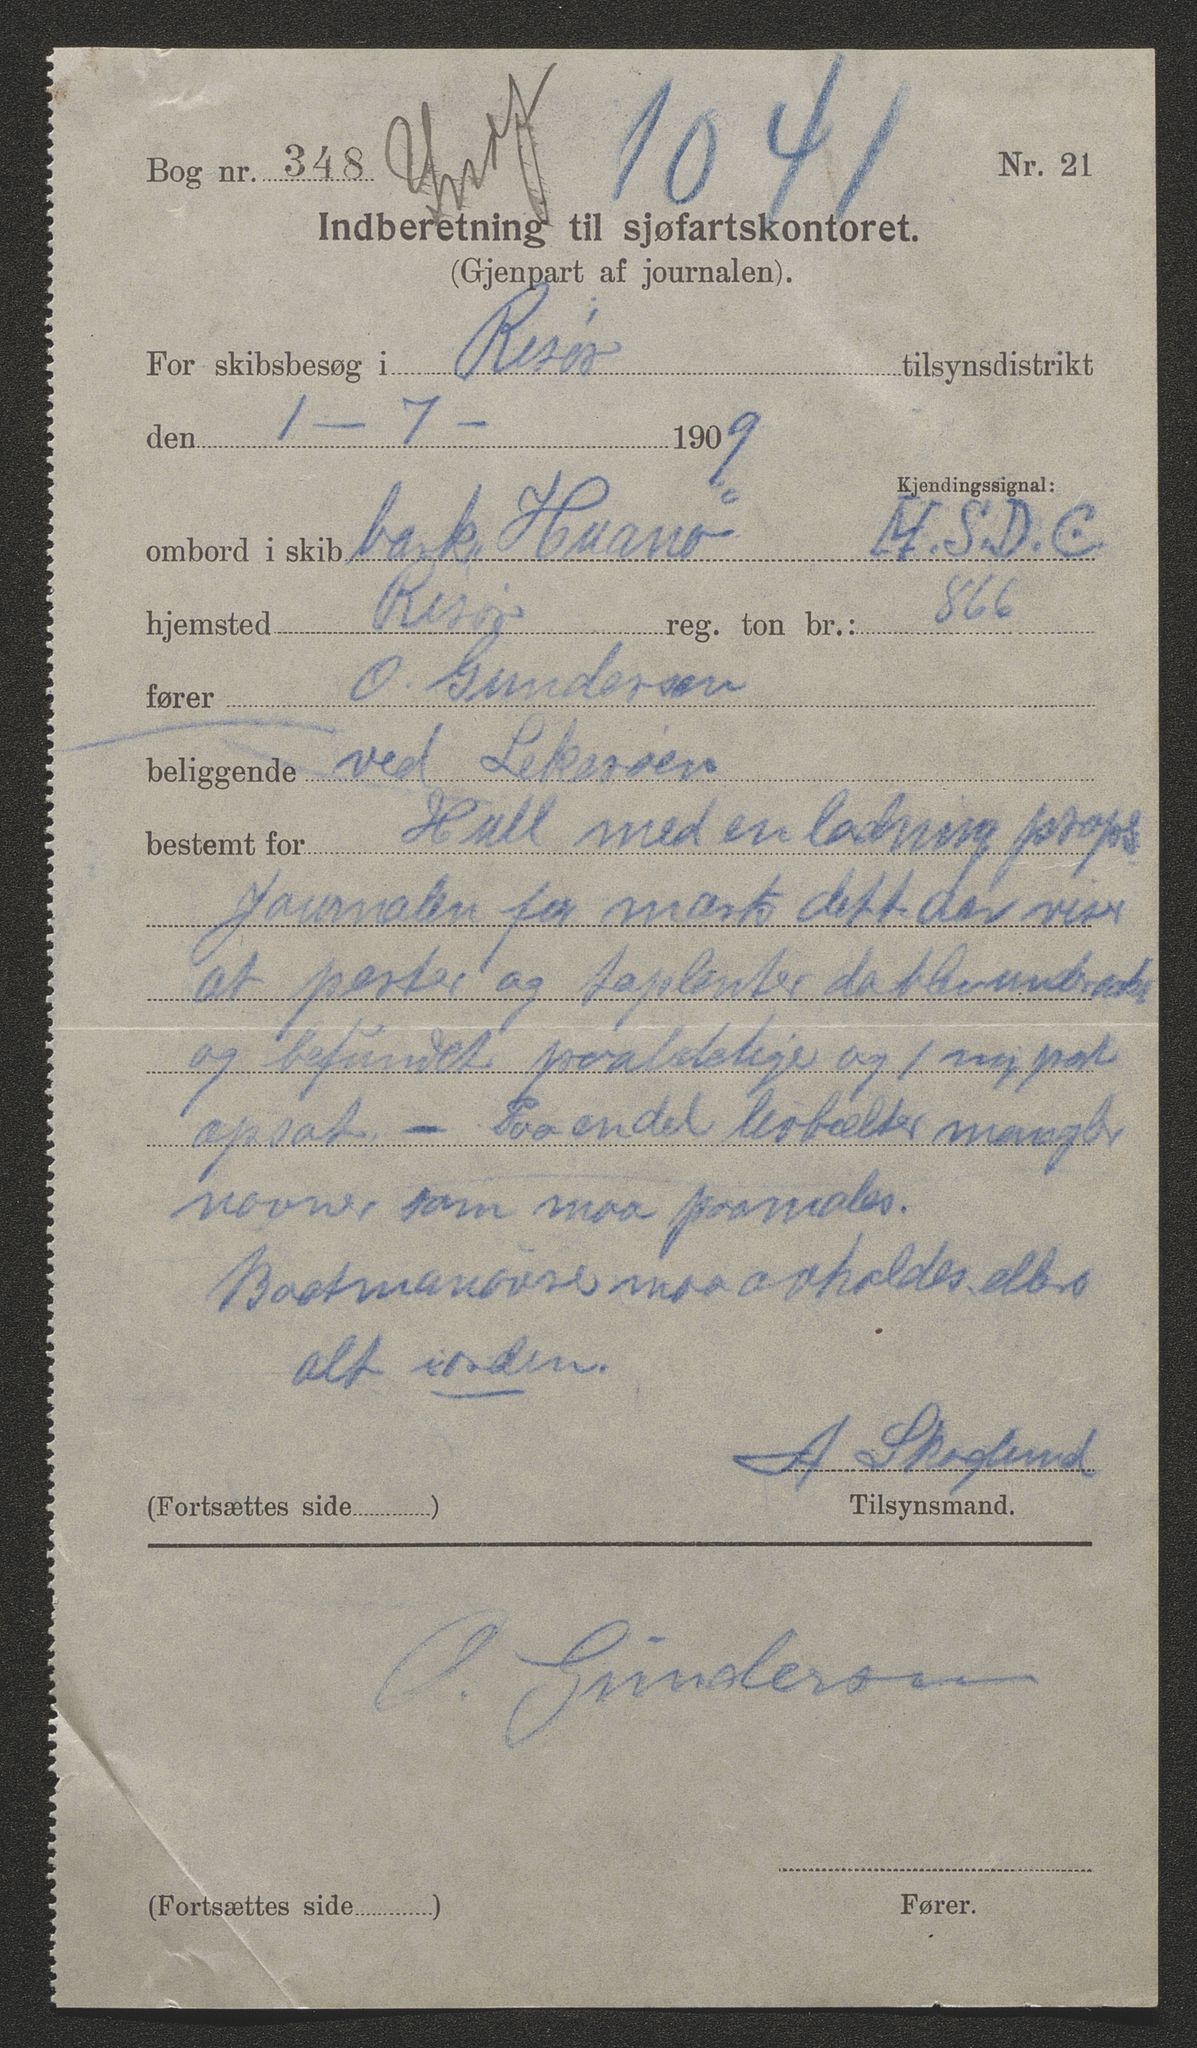 1041
Bog nr. 348 Nr. 21
Indberetning til sjøfartskontoret.
(Gjenpart af journalen).
For skibsbesøg i Risør tilsynsdistrikt
den 1 - 7 - 1909
Kjendingssignal:
ombord i skib bark. Hvanö M.S.D.C.
hjemsted Risør reg. ton br.: 866
fører O. Gundersen
beliggende ved
bestemt for Hull med en ladning props
Journalen for marts dette viser
at pæster og da blev
og befundet paalidelige og 1 ny
opsat. - Paa endel livbælter mangler
navner som maa paamales.
Baatmanøvre maa avholdes. ellers
alt iorden.
A Skoglund
(Fortsættes side ) Tilsynsmand.
O. Gundersen
(Fortsættes side ) Fører.